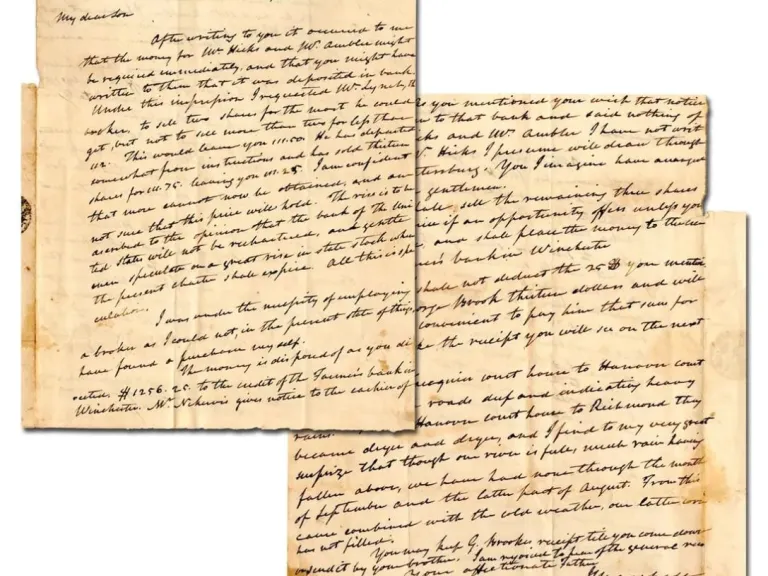 My dear son
After writing to you it occured to me
that the money for Mr Hicks and Mr. Ambler might
be required immediately, and that you might have
written to them that it was deposited in bank.
Under this impression I requested Mr. Lynch, the
broker, to sell two shares for the most he could
get, but not to sell more than two for less than
112. This would leave you 111.50. He has departed
somewhat from instructions and has sold thirteen
shares for 111.75. leaving you 111.25. I am confident
that more cannot now be obtained, and am
not sure that this price will hold. The rise is to be
ascribed to the opinion that the bank of the Uni
ted States will not be rechartered, and gentle
men speculate on a great rise in state stock when
the present charter shall expire. All this is spe
culation.
I was under the necessity of employing
a broker as I could not, in the present state of things,
have found a purchaser myself.
The money is disposed of as you di
rected, $1256.25. to the credit of the Farmers bank in
Winchester. Mr. Nekervis gives notice to the cashier of
you mentioned your wish that notice
to that bank and said nothing of
and Mr. Ambler I have not writ
Hicks I presume will draw through
You I imagine have arranged
gentlemen.
sell the remaining three shares
if an opportunity unless you
and shall place the money to the
bank in Winchester
shall not deduct the 25 D you mentio
Brook thirteen dollars and will
convenient to pay him that sum for
the receipt you will see on the next
court house to Hanover court
roads deep and indicating heavy
rains. Hanover court house to Richmond they
became dryer and dryer, and I find to my very great
surprize that though our river is full, much rain having
fallen above, we have had none through the month
of September and the latter part of August. From this
cause combined with the cold weather, our latter corn
has not filled.
You may keep G. Brooks receipt till you come down
or send it by your brother. I am rejoiced to hear of the general
Your affectionate Father